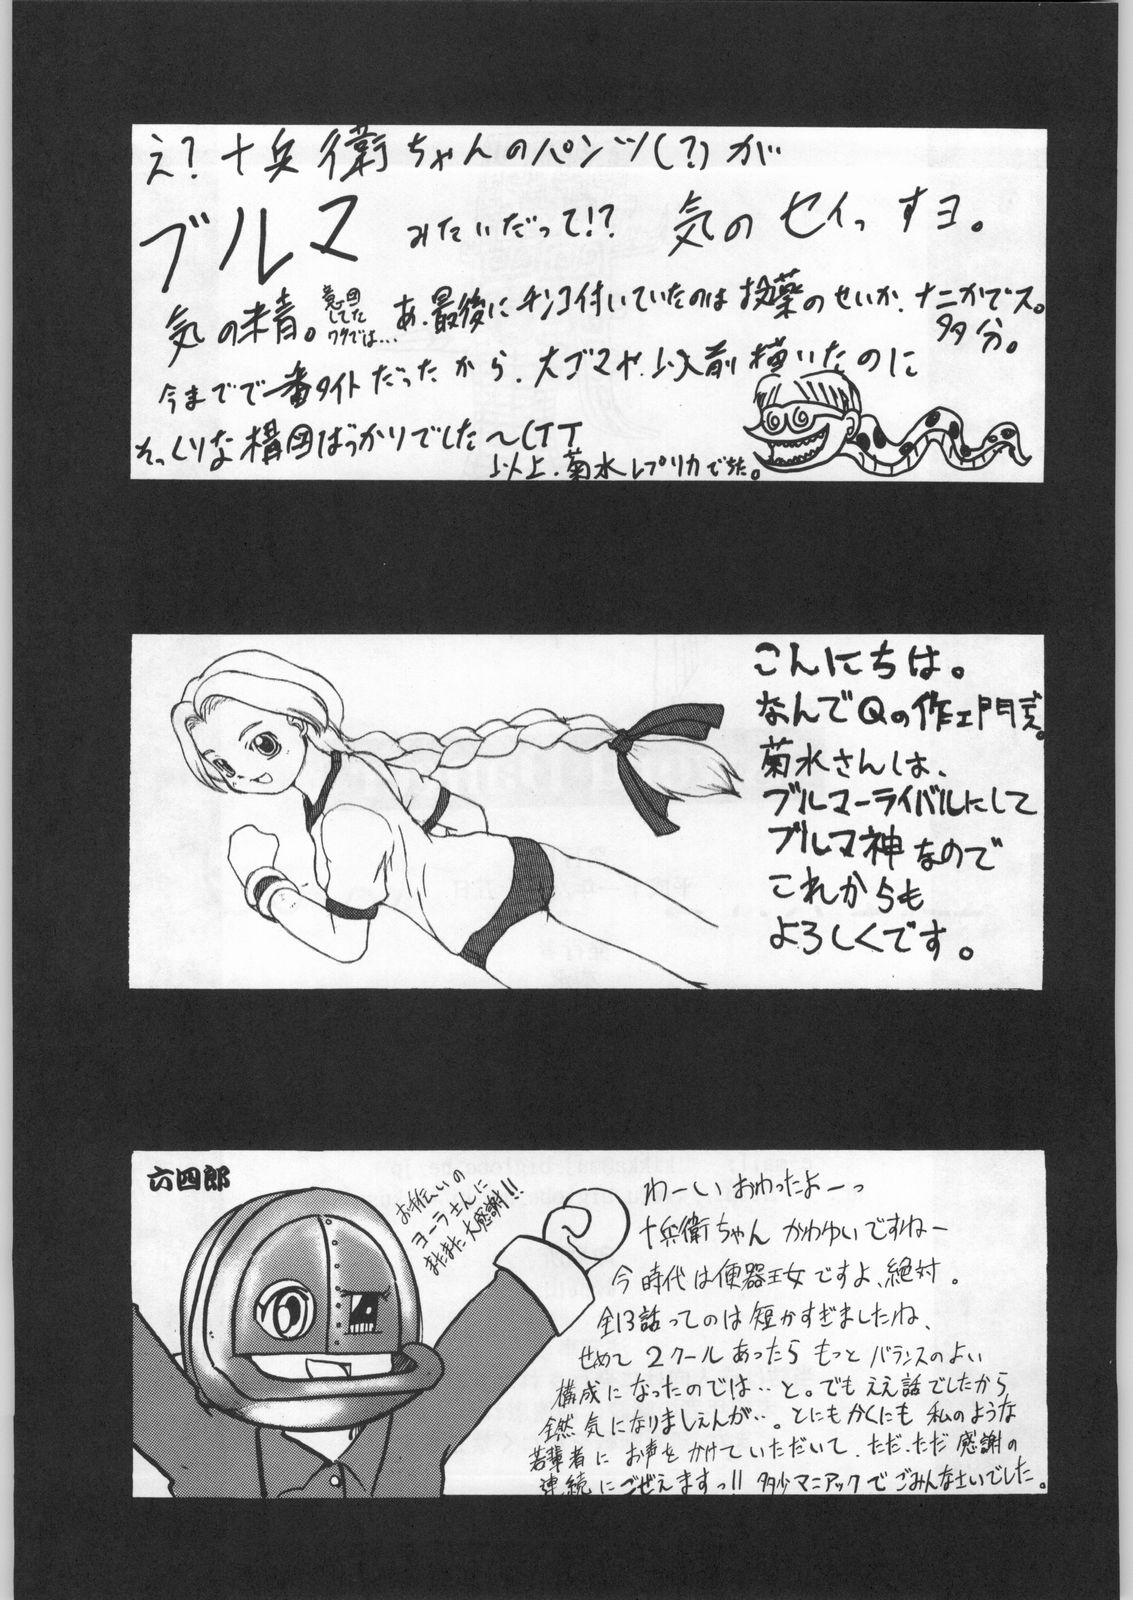 え?十兵衛ちゃんのパンツ(?)が
ブルマ みたいだって!? 気のセイっすヨ。
気の精。
意図
してた
ワケでは…
あ、最後にチンコ付いていたのは投薬のせいか、ナニかでス。
多分。
今までで一番タイトだったから、大ゴマや、以前描いたのに
そっくりな構図ばっかりでした〜(TT
以上、菊水レプリカでちた。
こんにちは。
なんでQの作エ門だ。
菊水さんは、
ブルマーライバルにして
ブルマ神なので
これからも
よろしくです。
六四郎
お手伝いの
ヨーラさんに
またまた大感謝!!
わーい おわったよーっ
十兵衛ちゃん かわゆいですねー
今時代は便器王女ですよ、絶対。
全13話ってのは短かすぎましたね、
せめて2クールあったらもっとバランスのよい
構成になったのでは‥と。でもええ話でしたから
全然気になりましぇんが‥。とにもかくにも私のような
若輩者にお声をかけていただいて、ただ、ただ感謝の
連続にごぜえますっ!!多少マニアックでごみんなせいでした。